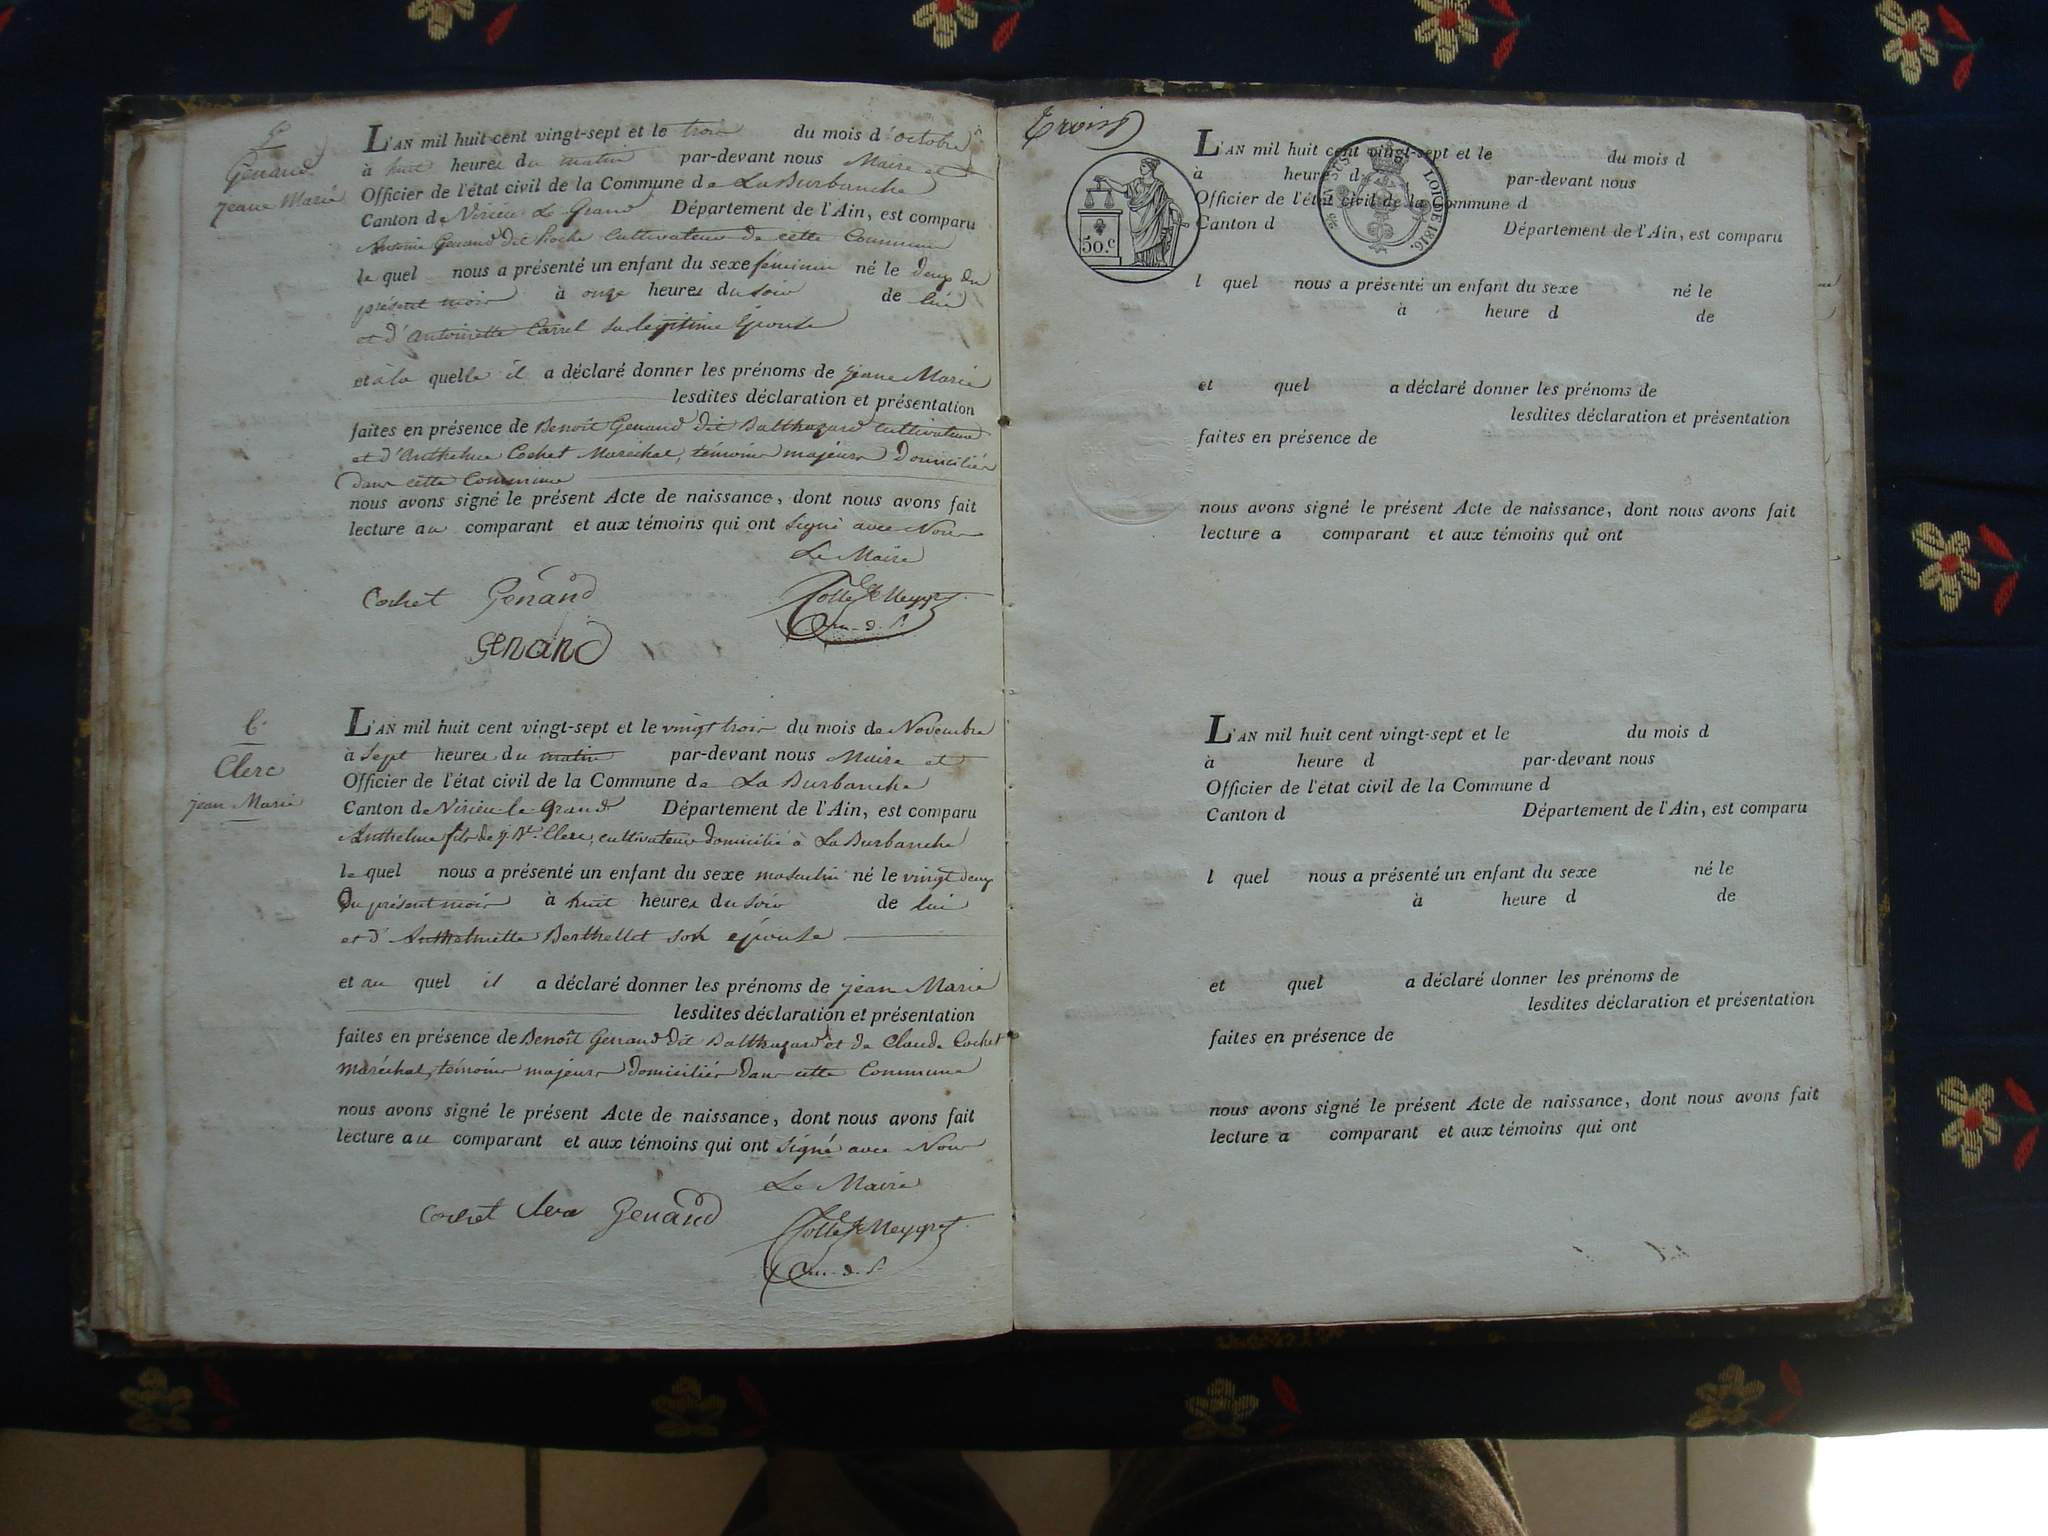 5e
Genand
jeane Marie
L'AN mil huit cent vingt-sept et le trois du mois d'octobre
à huit heures du matin par-devant nous Maire et
Officier de l'état civil de la Commune de La Burbanche
Canton de Virieu Le Grand Département de l'Ain, est comparu
Antoine Genand dit Roche cultivateur de cette Commune
le quel nous a présenté un enfant du sexe féminin né le deux du
présent mois à onze heures du soir de lui
et d'Antoinette Carrel sa légitime Epouse
et à la quelle il a déclaré donner les prénoms de jeane Marie
lesdites déclaration et présentation
faites en présence de Benoit Genand dit Balthazard cultivateur
et d'Anthelme Cochet Maréchal, témoins majeurs domiciliés
dans cette Commune
nous avons signé le présent Acte de naissance, dont nous avons fait
lecture au comparant et aux témoins qui ont signé avec Nous
Le Maire
Cochet Genand
Genand
6e
Clerc
jean Marie
L'AN mil huit cent vingt-sept et le vingt trois du mois de Novembre
à Sept heures du matin par-devant nous Maire et
Officier de l'état civil de la Commune de La Burbanche
Canton de Virieu-le-grand Département de l'Ain, est comparu
Anthelme fils de j. Bte. Clerc, cultivateur domicilié à La Burbanche
le quel nous a présenté un enfant du sexe masculin né le vingt deux
Du présent mois à huit heures du soir de lui
et d'Anthelmette Berthellet son épouse
et au quel il a déclaré donner les prénoms de jean Marie
lesdites déclaration et présentation
faites en présence de Benoît Genand dit Balthazard et de Claude Cochet
maréchal, témoins majeurs domiciliés dans cette Commune
nous avons signé le présent Acte de naissance, dont nous avons fait
lecture au comparant et aux témoins qui ont signé avec Nous
Le Maire
Cochet Clerc Genand
50.c
LOI DE 1816.
L'AN mil huit cent vingt-sept et le du mois d
à heure d par-devant nous
Officier de l'état civil de la Commune d
Canton d Département de l'Ain, est comparu
l quel nous a présenté un enfant du sexe né le
à heure d de
et quel a déclaré donner les prénoms de
lesdites déclaration et présentation
faites en présence de
nous avons signé le présent Acte de naissance, dont nous avons fait
lecture a comparant et aux témoins qui ont
L'AN mil huit cent vingt-sept et le du mois d
à heure d par-devant nous
Officier de l'état civil de la Commune d
Canton d Département de l'Ain, est comparu
l quel nous a présenté un enfant du sexe né le
à heure d de
et quel a déclaré donner les prénoms de
lesdites déclaration et présentation
faites en présence de
nous avons signé le présent Acte de naissance, dont nous avons fait
lecture a comparant et aux témoins qui ont